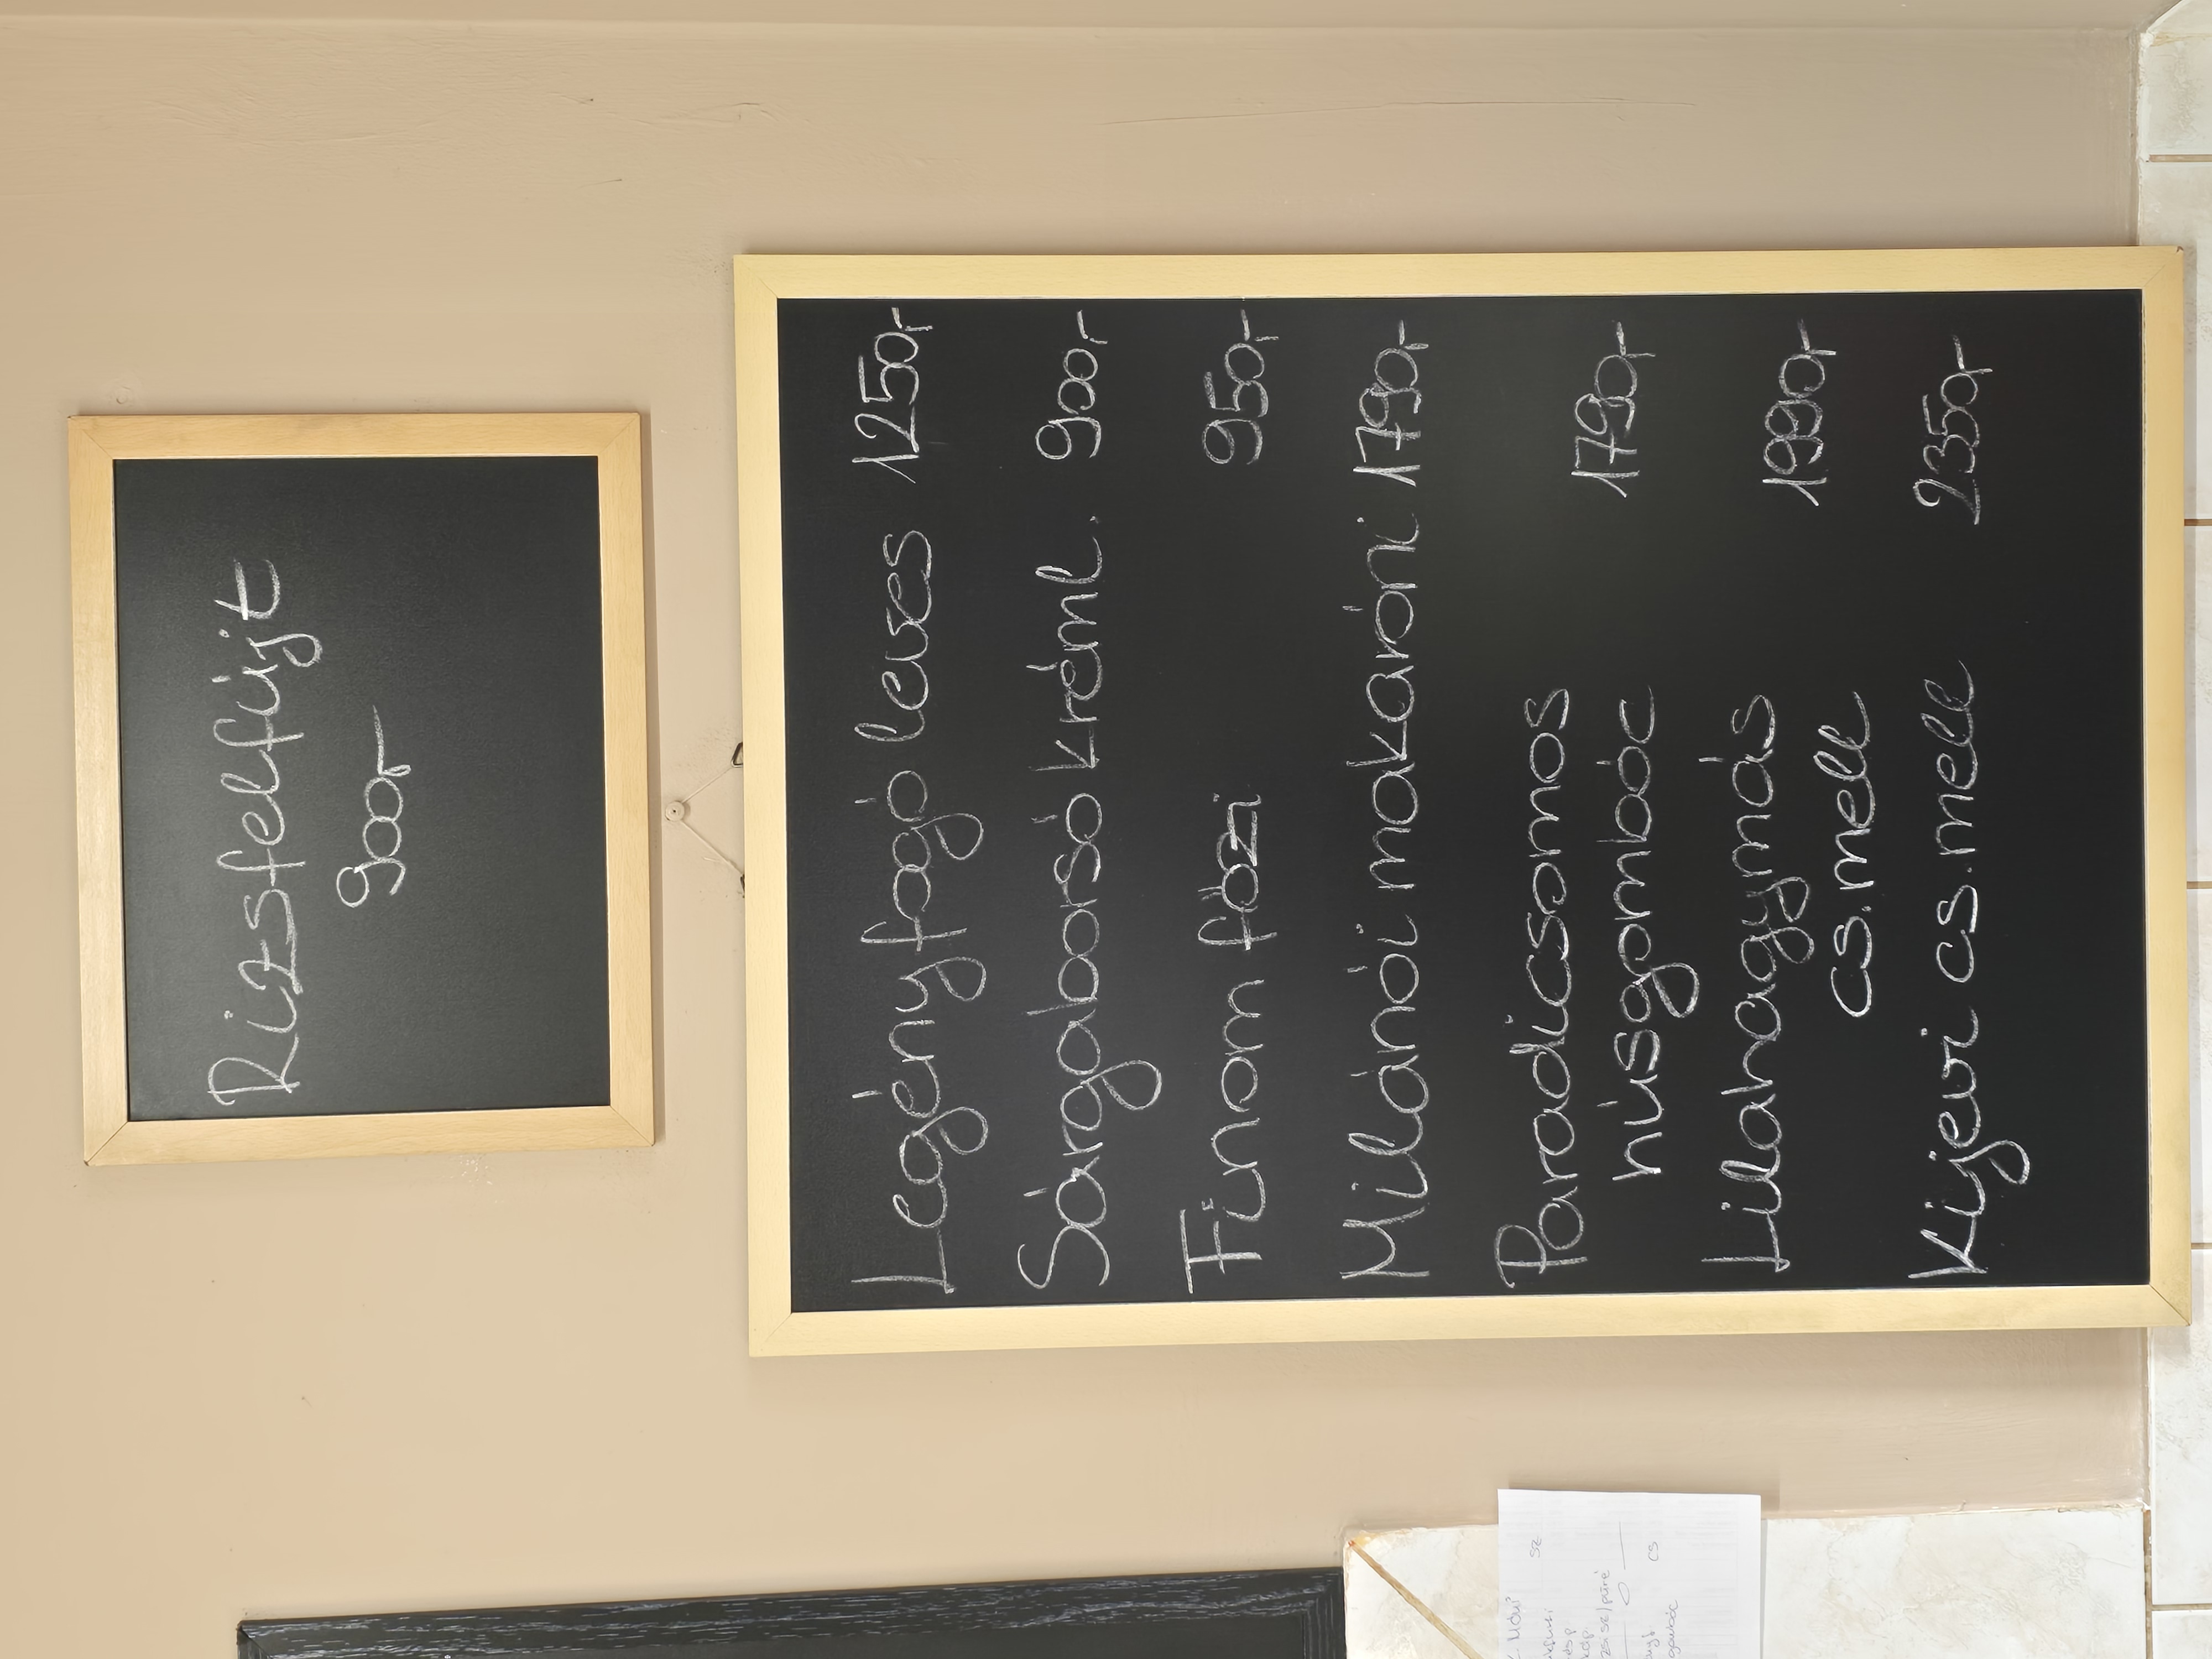 Rizsfelfújt
900,-
Legényfogó leves 1250,-
Sárgaborsó kréml. 900,-
Finom főzi 950,-
Milánói makaróni 1790,-
Paradicsomos
húsgombóc 1790,-
Lilahagymás
cs.mell 1990,-
Kijevi cs.mell 2350,-
SZ
/püré
CS
gombóc